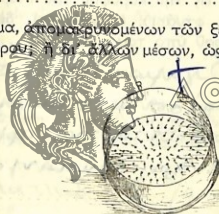 μα, ἀπομακρυνομένων τῶν ξ
ρου; ἢ δι' ἄλλων μέσων, ὡς